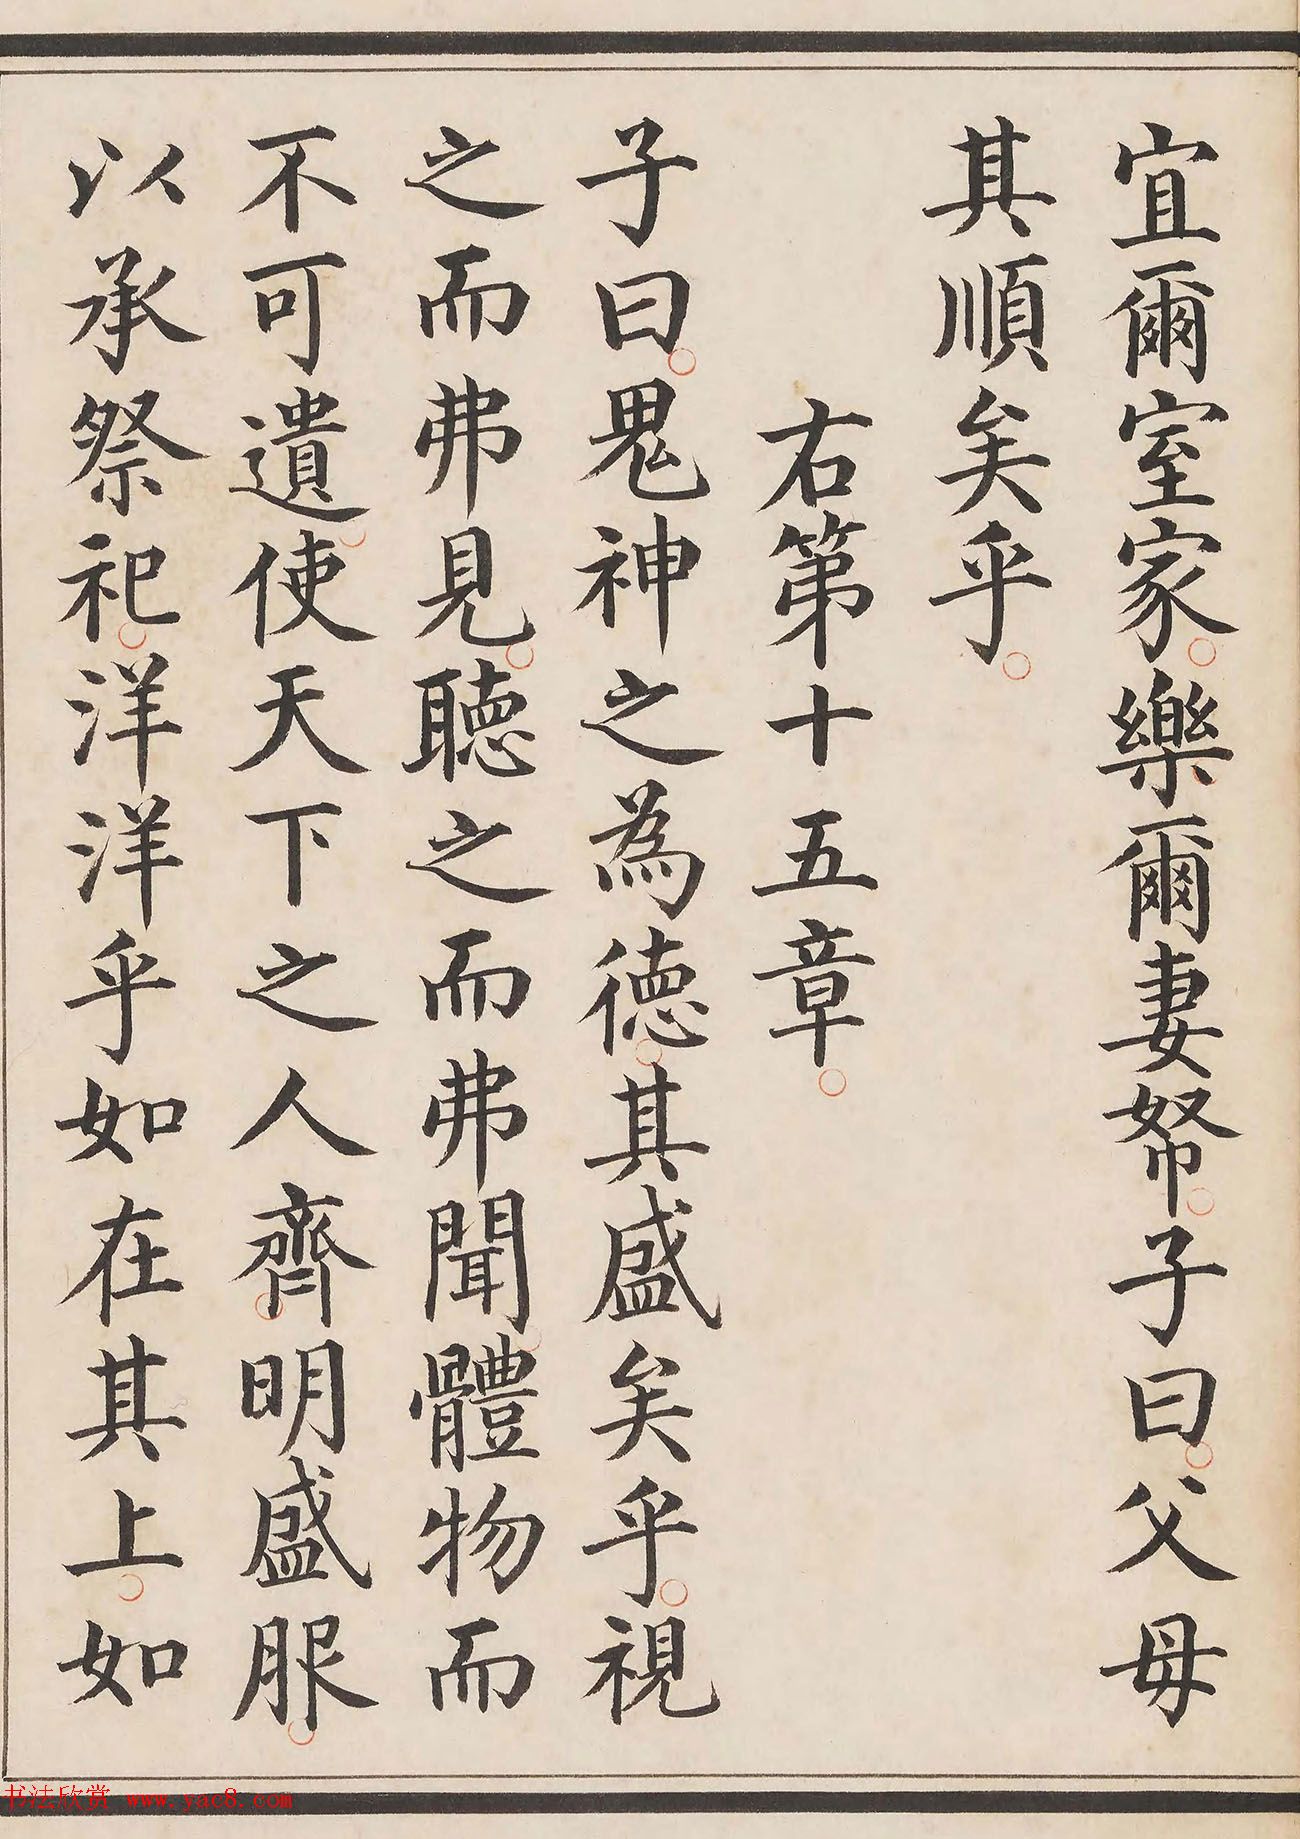 宜爾室家樂爾妻帑子曰父母
其順矣乎
右第十五章
子曰鬼神之為德其盛矣乎視
之而弗見聽之而弗聞體物而
不可遺使天下之人齊明盛服
以承祭祀洋洋乎如在其上如
书法欣赏 www.yac8.com